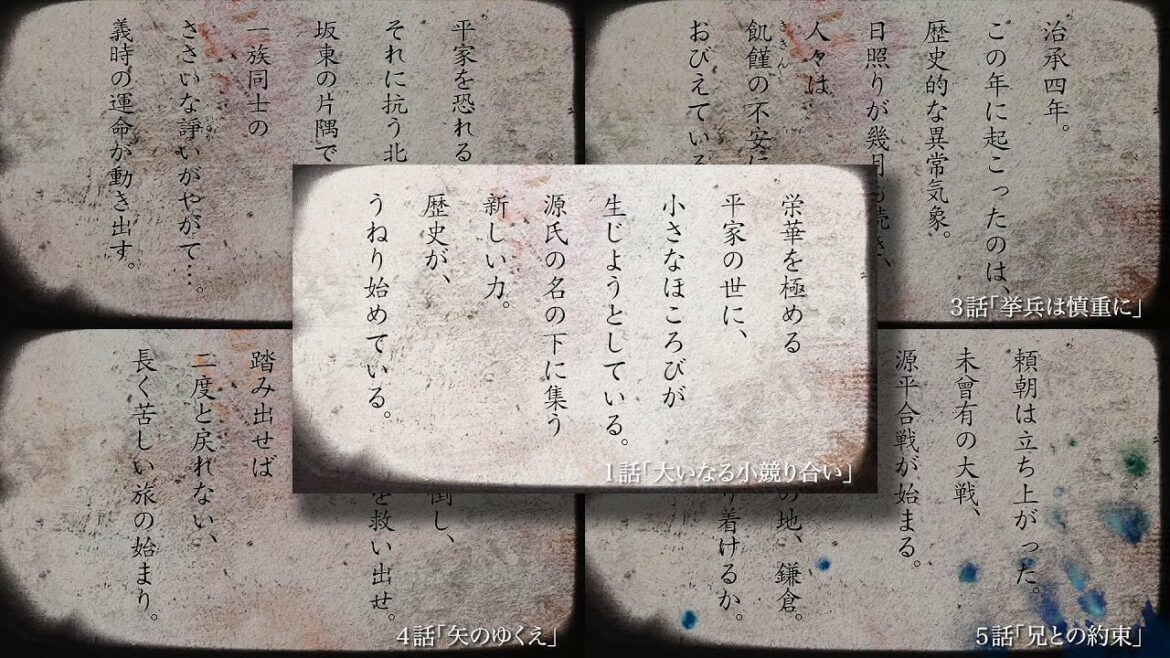 平家を恐れる
それに抗う北
坂東の片隅で
一族同士の
ささいな諍いがやがて…。
いさか
義時の運命が動き出す。
治承四年。
この年に起こったのは、
歴史的な異常気象。
日照りが幾月も続き、
人々は
飢饉の不安に
ききん
おびえている
3話「挙兵は慎重に」
栄華を極める
平家の世に、
小さなほころびが
生じようとしている。
源氏の名の下に集う
新しい力。
歴史が、
うねり始めている。
1話「大いなる小競り合い」
倒し、
を救い出せ。
踏み出せば
二度と戻れない、
長く苦しい旅の始まり。
4話「矢のゆくえ」
頼朝は立ち上がった。
未曾有の大戦、
源平合戦が始まる。
の地、鎌倉。
り着けるか。
5話「兄との約束」